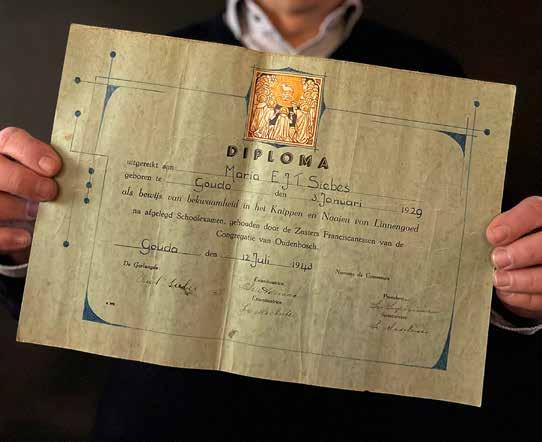 DIPLOMA
uitgereikt aan Maria E J T Siebes
geboren te Gouda den 3 Januari 1929
als bewijs van bekwaamheid in het Knippen en Naaien van Linnengoed
na afgelegd Schoolexamen, gehouden door de Zusters Franciscanessen van de
Congregatie van Oudenbosch.
Gouda den 12 Juli 194
De Geslaagde
Examinatrice
Namens de Commissie
Examinatrice
Presidente
Secretaresse